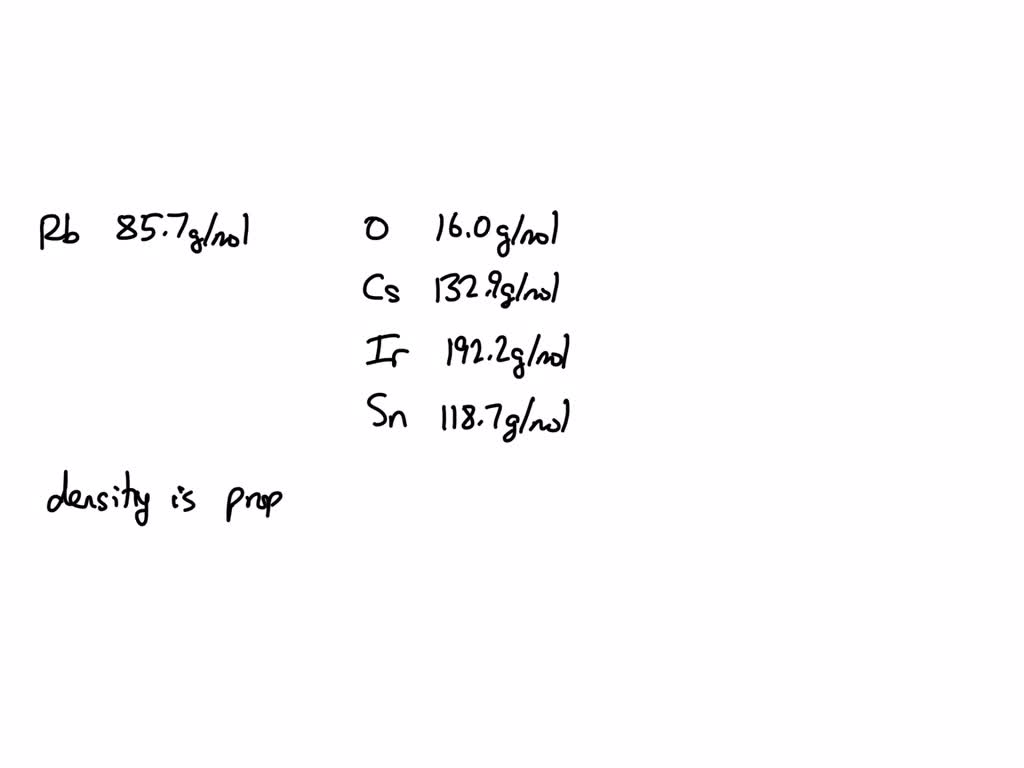 Rb 85.7g/mol O 16.0g/mol
Cs 132.9g/mol
Ir 192.2g/mol
Sn 118.7g/mol
density is prop